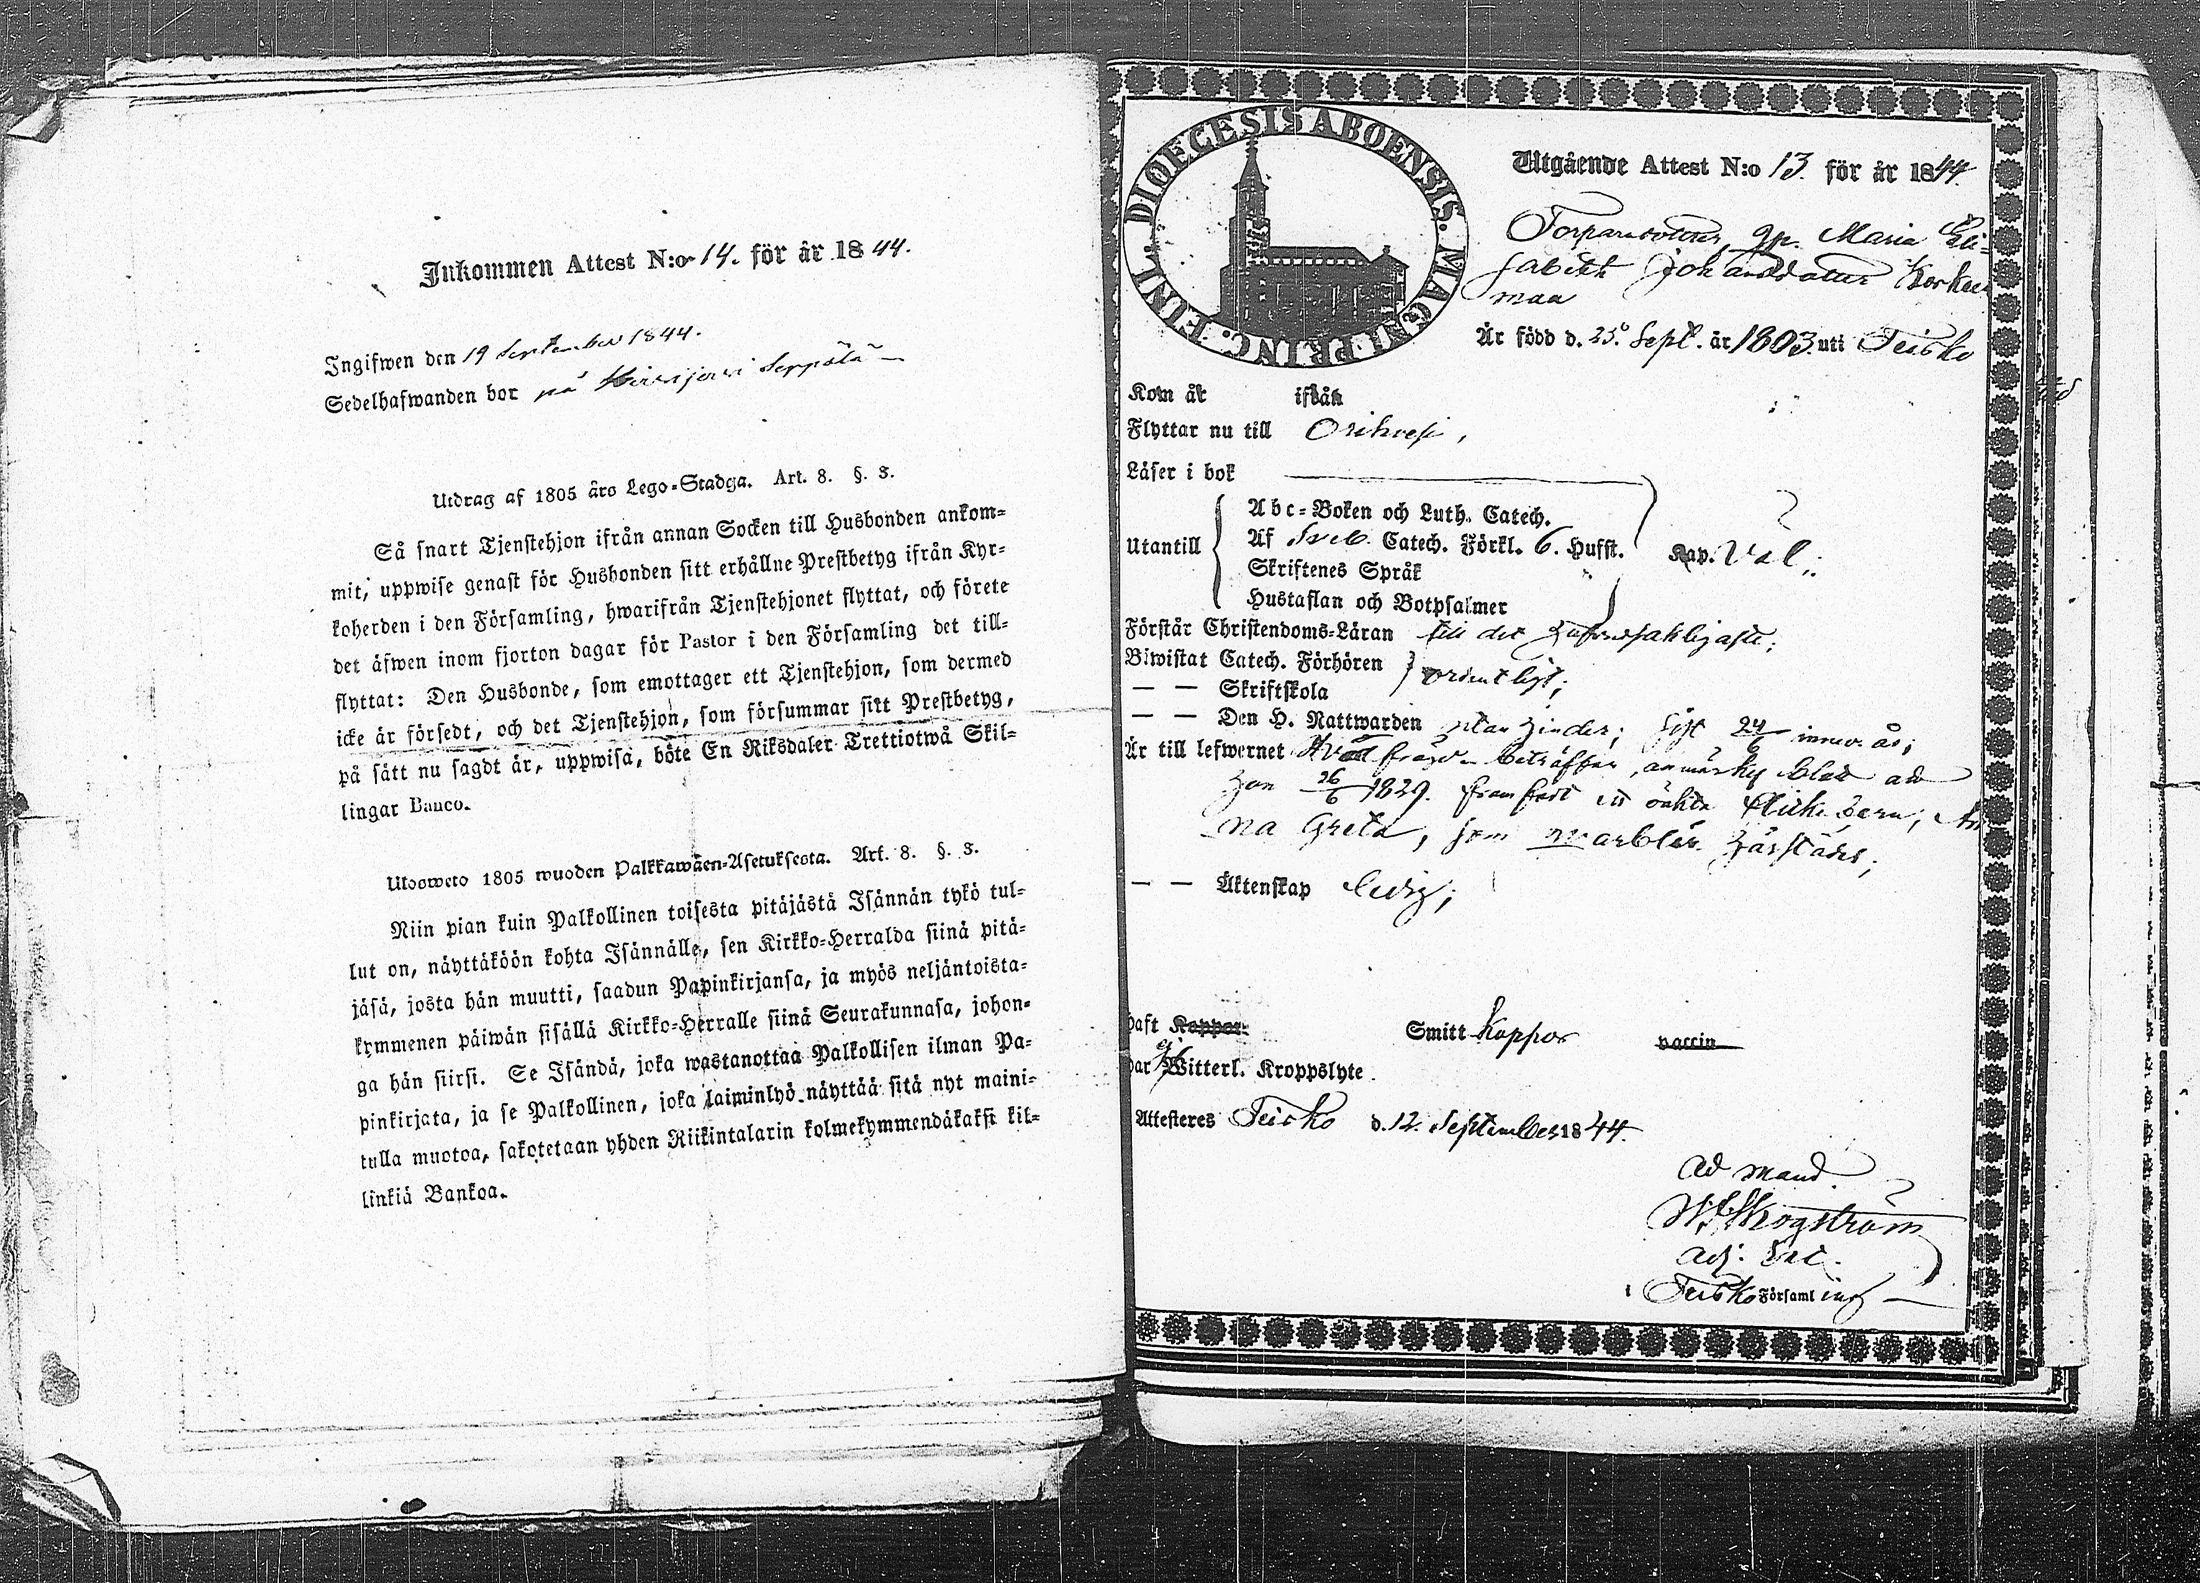 Inkommen Attest N:o 14. för år 1844.
Ingifwen den 19 September 1844.
Sedelhafwanden bor på Hirsijerwi Seppälä
Utdrag af 1805 års Lego-Stadga. Art. 8. §. 3.
Så snart Tjenstehjon ifrån annan Socken till Husbonden ankom-
mit, uppwise genast för Husbonden sitt erhållne Prestbetyg ifrån Kyr-
koherden i den Församling, hwarifrån Tjenstehjonet flyttat, och förete
det äfwen inom fjorton dagar för Pastor i den Församling det till-
flyttat: Den Husbonde, som emottager ett Tjenstehjon, som dermed
icke är försedt, och det Tjenstehjon, som försummar sitt Prestbetyg,
på sätt nu sagdt är, uppwisa, böte En Riksdaler Trettiotwå Skil-
lingar Banco.
Uloosweto 1805 wuoden Palkkawäen-Asetuksesta. Art. 8. §. 3.
Niin pian kuin Palkollinen toisesta pitäjästä Isännän tykö tul-
lut on, näyttäköön kohta Isännälle, sen Kirkko-Herralda siinä pitä-
jäsä, josta hän muutti, saadun Papinkirjansa, ja myös neljäntoista-
kymmenen päiwän sisällä Kirkko-Herralle siinä Seurakunnasa, johon-
ga hän siirsi. Se Isändä, joka wastanottaa Palkollisen ilman Pa-
pinkirjata, ja se Palkollinen, joka laiminlyö näyttää sitä nyt maini-
tulla muotoa, sakotetaan yhden Riikintalarin kolmekymmendäkaksi kil-
linkiä Bankoa.
DIOECESIS ABOENSIS. MAGNI PRINC. FINL.
Utgående Attest N:o 13. för år 1844.
Torparedotter, qp. Maria Eli-
sabeth Johansdotter Korkea
maa
Är född d. 25. Sept. år 1803. uti Teisko
Kom år ifrån
Flyttar nu till Orihvesi,
Läser i bok
Abc-Boken och Luth. Catech.
Utantill Af Sveb. Catech. Förkl. 6. Hufst. Kap. Väl;
Skriftenes Språk
Hustaflan och Botpsalmer
Förstår Christendoms-Läran till det
Biwistat Catech. Förhören ordentligt;
— — Skriftskola
— — Den H. Nattwarden utan hinder; sist 24/6 innev. år;
Är till lefwernet Hvad beträffar, anmärkes blott att
hon 26/6 1829. framfödt ett oäkta flickebarn, An
na Greta, som
— — Äktenskap ledig;
haft Koppor Smitt Koppor vaccin
har ej Witterl. Kroppslyte
Attesteres Teisko d. 12. September 1844.
Ad mand.
Skogström
Adj.
i Teisko Församling